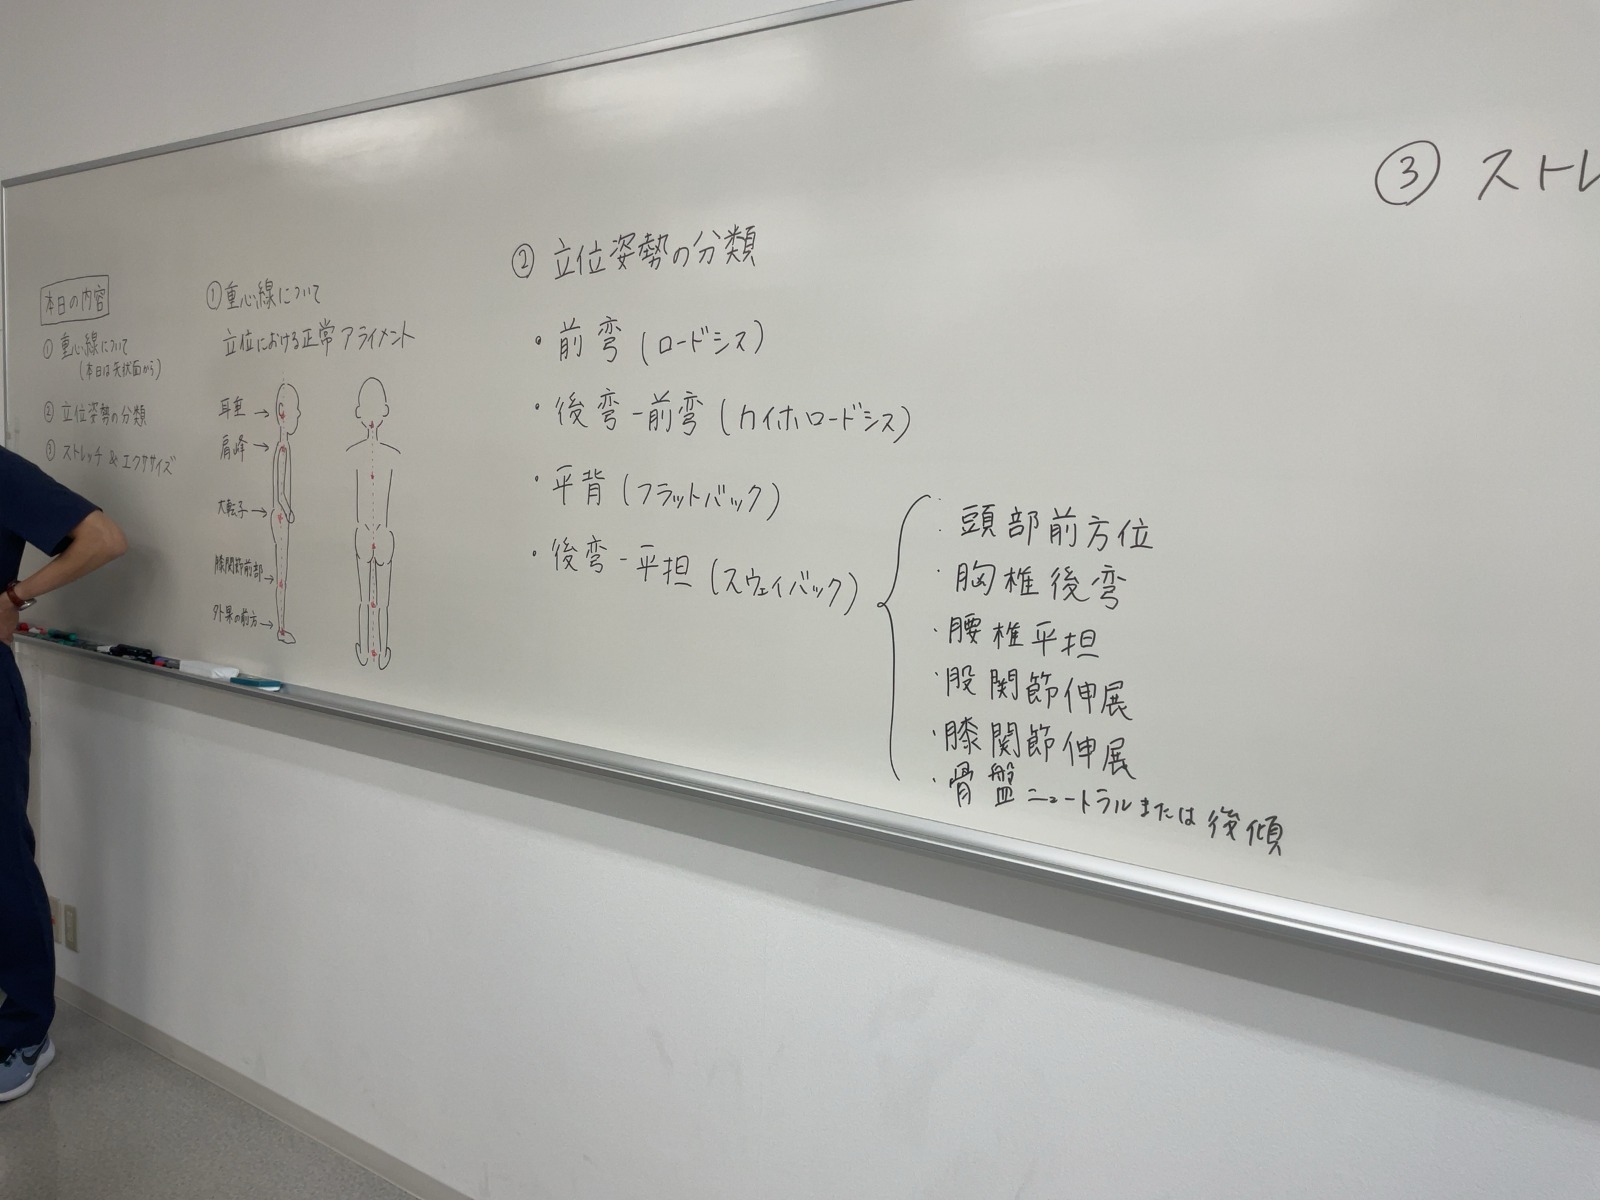 本日の内容
① 重心線について
(本日は矢状面から)
② 立位姿勢の分類
③ ストレッチ & エクササイズ
①重心線について
立位における正常アライメント
耳垂→
肩峰→
大転子→
膝関節前部→
外果の前方→
② 立位姿勢の分類
・前弯(ロードシス)
・後弯-前弯(カイホロードシス)
・平背(フラットバック)
・後弯-平坦(スウェイバック)
・頭部前方位
・胸椎後弯
・腰椎平坦
・股関節伸展
・膝関節伸展
・骨盤ニュートラルまたは後傾
③ ストレ